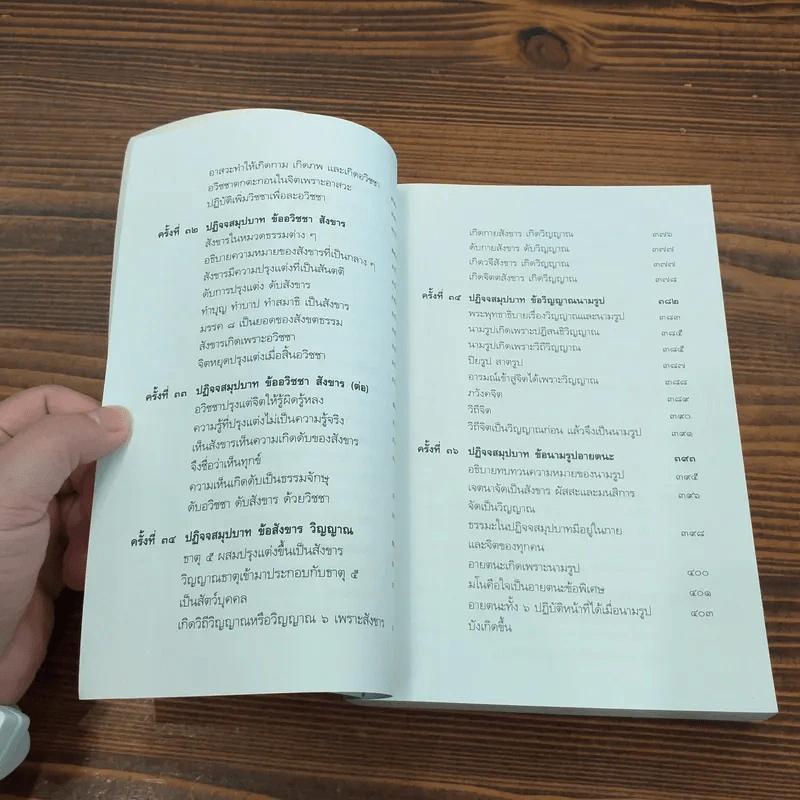 อาสวะทำให้เกิดกาม เกิดภพ และเกิดอวิชชา
อวิชชาตกตะกอนในจิตเพราะอาสวะ
ปฏิบัติเพิ่มวิชชาเพื่อละอวิชชา
ครั้งที่ ๓๒ ปฏิจจสมุปบาท ข้ออวิชชา สังขาร
สังขารในหมวดธรรมต่าง ๆ
อธิบายความหมายของสังขารที่เป็นกลาง ๆ
สังขารมีความปรุงแต่งที่เป็นสันตติ
ดับการปรุงแต่ง ดับสังขาร
ทำบุญ ทำบาป ทำสมาธิ เป็นสังขาร
มรรค ๘ เป็นยอดของสังขตธรรม
สังขารเกิดเพราะอวิชชา
จิตหยุดปรุงแต่งเมื่อสิ้นอวิชชา
ครั้งที่ ๓๓ ปฏิจจสมุปบาท ข้ออวิชชา สังขาร (ต่อ)
อวิชชาปรุงแต่จิตให้รู้ผิดรู้หลง
ความรู้ที่ปรุงแต่งไม่เป็นความรู้จริง
เห็นสังขารเห็นความเกิดดับของสังขาร
จึงชื่อว่าเห็นทุกข์
ความเห็นเกิดดับเป็นธรรมจักษุ
ดับอวิชชา ดับสังขาร ด้วยวิชชา
ครั้งที่ ๓๔ ปฏิจจสมุปบาท ข้อสังขาร วิญญาณ
ธาตุ ๕ ผสมปรุงแต่งขึ้นเป็นสังขาร
วิญญาณธาตุเข้ามาประกอบกับธาตุ ๕
เป็นสัตว์บุคคล
เกิดวิถีวิญญาณหรือวิญญาณ ๖ เพราะสังขาร
เกิดกายสังขาร เกิดวิญญาณ ๓๗๖
ดับกายสังขาร ดับวิญญาณ ๓๗๗
เกิดวจีสังขาร เกิดวิญญาณ ๓๗๗
เกิดจิตตสังขาร เกิดวิญญาณ ๓๗๘
ครั้งที่ ๓๕ ปฏิจจสมุปบาท ข้อวิญญาณนามรูป ๓๘๒
พระพุทธาธิบายเรื่องวิญญาณและนามรูป ๓๘๓
นามรูปเกิดเพราะปฏิสนธิวิญญาณ ๓๘๕
นามรูปเกิดเพราะวิถีวิญญาณ ๓๘๕
ปิยรูป สาตรูป ๓๘๗
อารมณ์เข้าสู่จิตได้เพราะวิญญาณ ๓๘๘
ภวังคจิต ๓๘๙
วิถีจิต ๓๙๐
วิถีจิตเป็นวิญญาณก่อน แล้วจึงเป็นนามรูป ๓๙๑
ครั้งที่ ๓๖ ปฏิจจสมุปบาท ข้อนามรูปอายตนะ ๓๙๓
อธิบายทบทวนความหมายของนามรูป ๓๙๕
เจตนาจัดเป็นสังขาร ผัสสะและมนสิการ ๓๙๖
จัดเป็นวิญญาณ
ธรรมะในปฏิจจสมุปบาทมีอยู่ในกาย ๓๙๘
และจิตของทุกคน
อายตนะเกิดเพราะนามรูป ๔๐๐
มโนคือใจเป็นอายตนะข้อพิเศษ ๔๐๑
อายตนะทั้ง ๖ ปฏิบัติหน้าที่ได้เมื่อนามรูป ๔๐๓
บังเกิดขึ้น